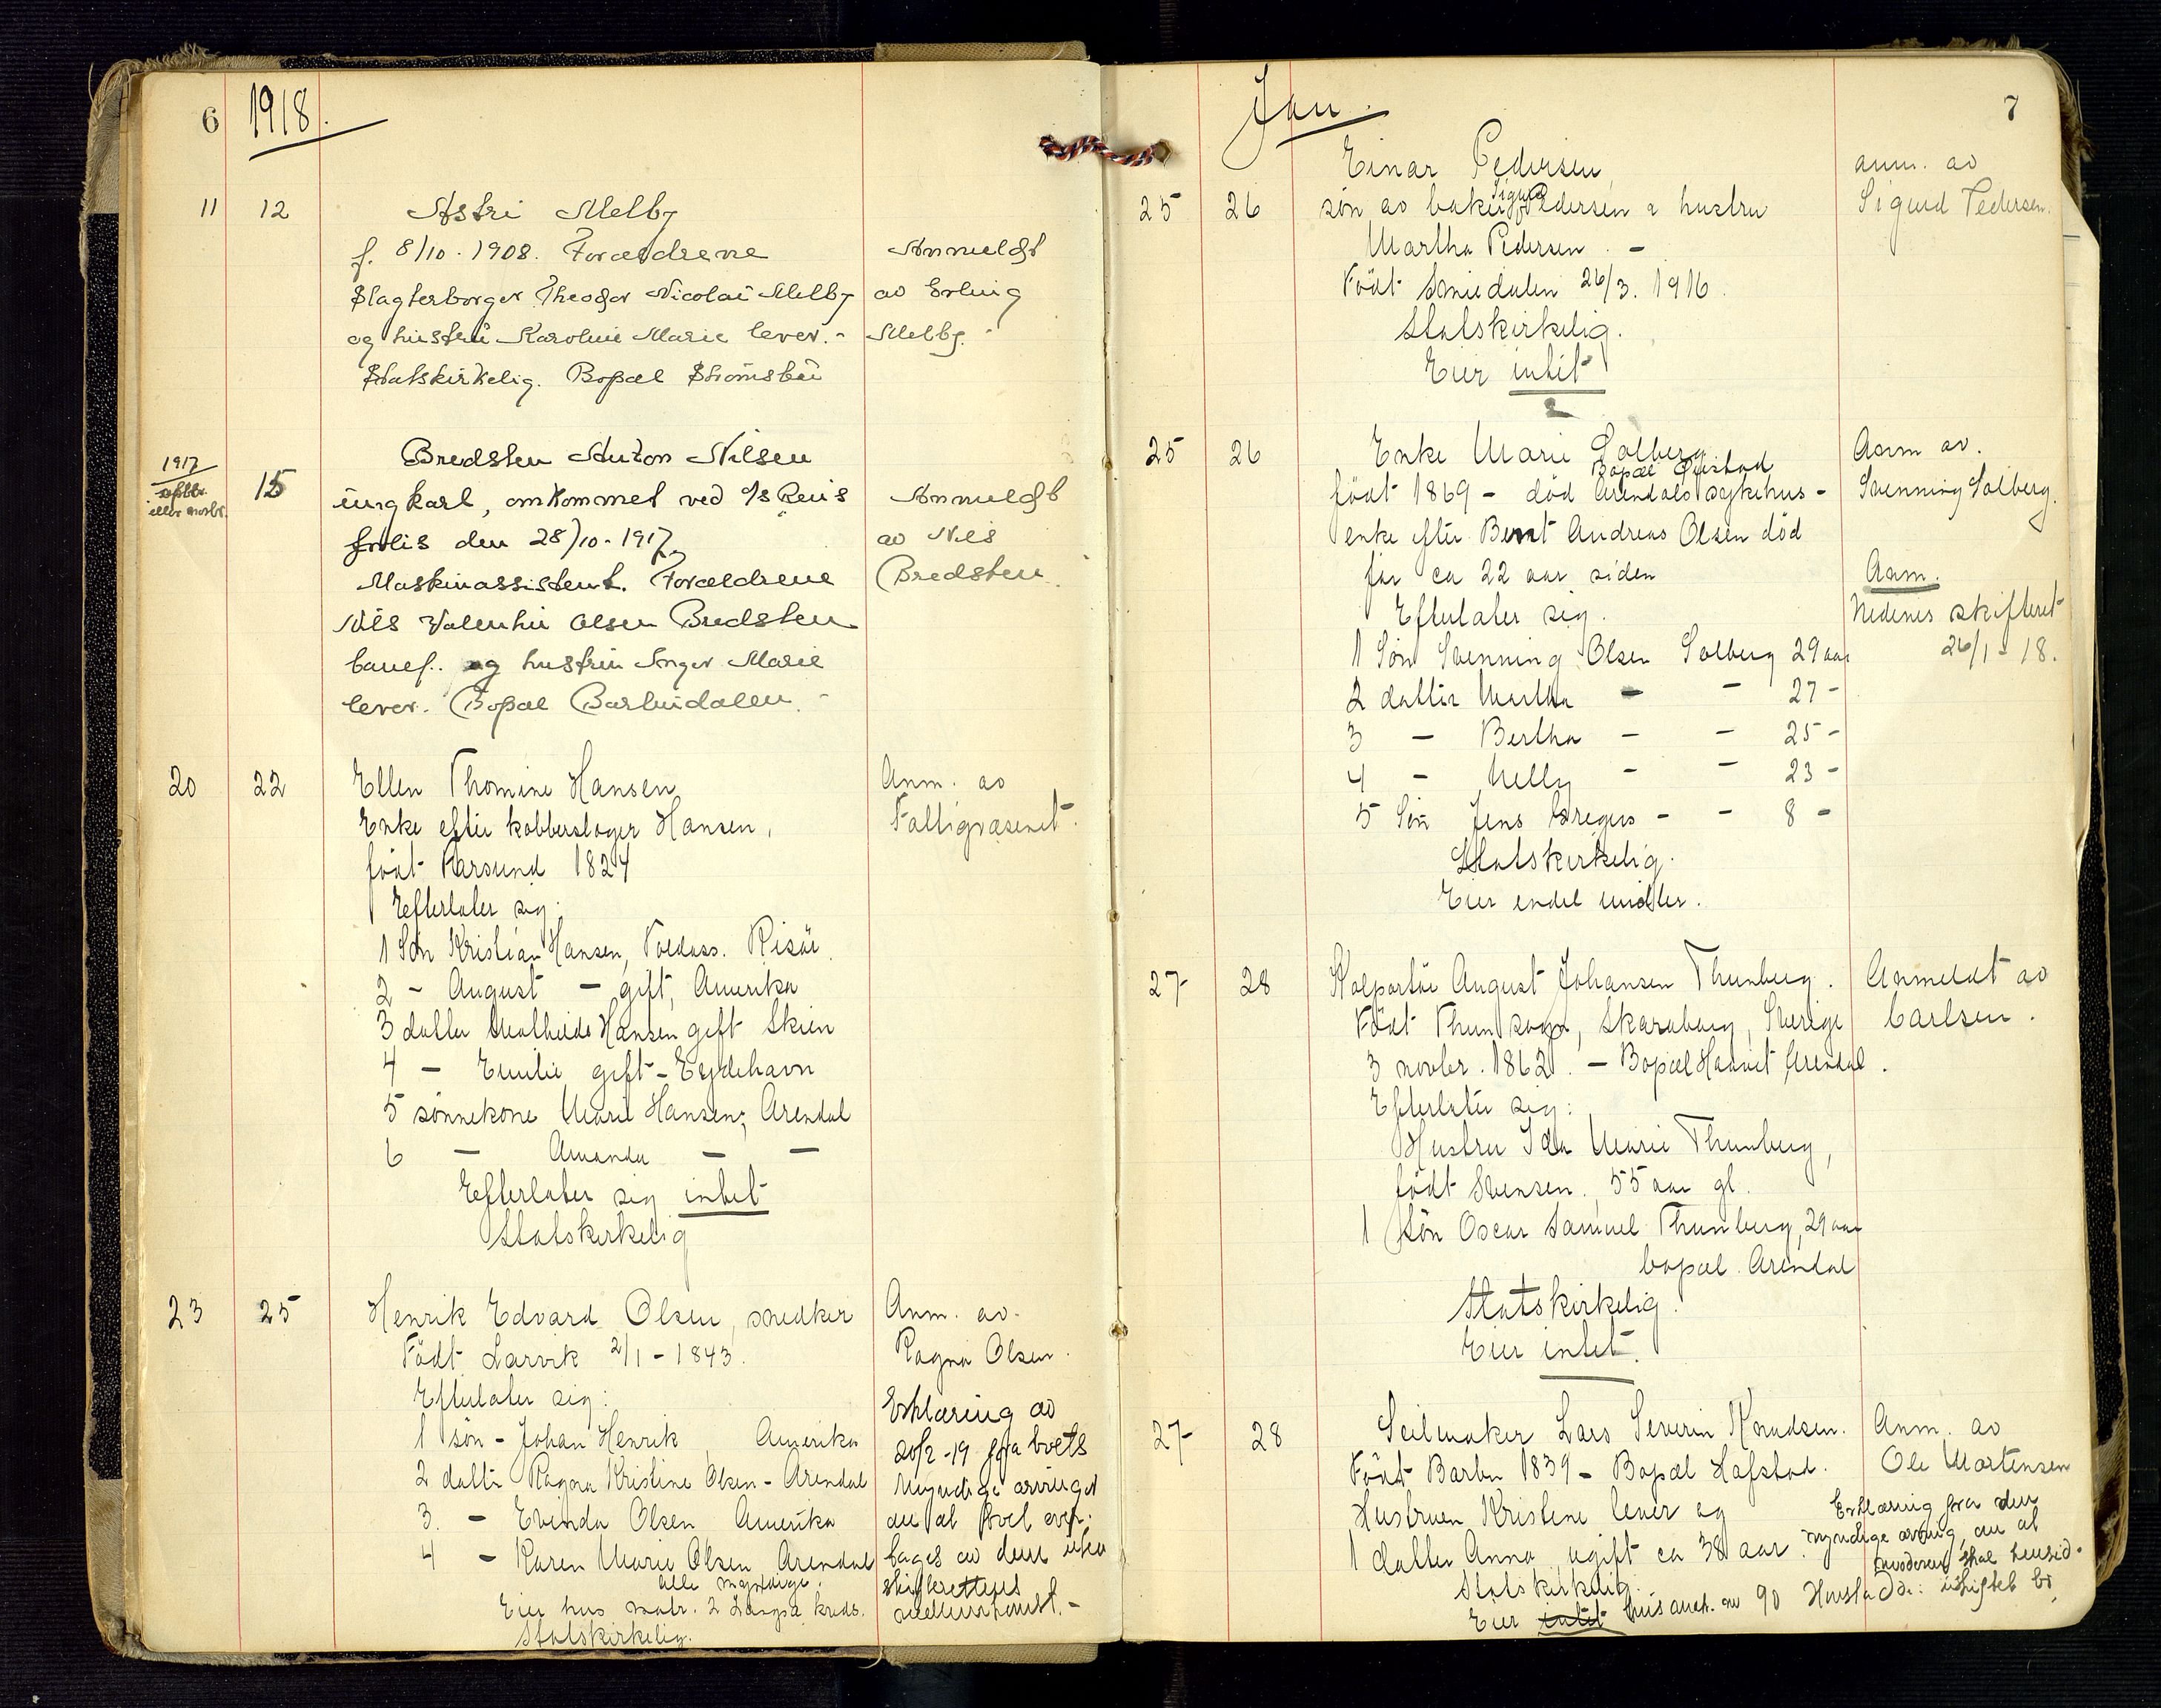 6 1918.
11 12 Astri Melby
f. 8/10. 1908. Forældrene Anmeldt
Slagterborger Theodor Nicolai Melby av Erling
og hustru Karoline Marie lever. - Melby. -
Statskirkelig. Bopæl Strömsbu
1917 Bredsten Anton Nilsen
septbr. 15 ungkarl, omkommet ved s/s Anmeldt
eller novbr. forlis den 28/10. 1917 av Nils
Maskinassistent. Forældrene Bredsten.
Nils Valentin Olsen Bredsten
banef. og hustru Inger Marie
lever. Bopæl Barbudalen. -
20 22 Ellen Thomine Hansen Anm. av
Enke efter kobberslager Hansen, Fattigvæsenet.
födt Farsund 1824
Efterlater sig:
1 Sön Kristian Hansen, Toldass. Risör.
2 - August - gift, Amerika
3 datter Mathilde Hansen gift Skien
4 - Emilie gift - Eydehavn
5 sönnekone Marie Hansen, Arendal
6 - Amanda - -
Efterlater sig intet
Statskirkelig
23 25 Henrik Edvard Olsen, snedker Anm. av.
Födt Larvik 2/1 - 1843. Ragna Olsen.
Efterlater sig:
1 sön - Johan Henrik, Amerika
2 datter Ragna Kristine Olsen - Arendal
3. - Evinda Olsen Amerika
4 - Karen Marie Olsen Arendal
alle myndige.
Eier hus matr. 2 Langsæ kreds.
Statskirkelig.
Erklæring av
20/2 -19 fra boets
myndige arvinger
om at boet over-
tages av dem uten
skifterettens
mellemkomst. -
Jan. 7
Einar Pedersen, anm. av
25 26 sön av baker Sigurd Pedersen & hustru Sigurd Pedersen.
Martha Pedersen. -
Födt Smiedalen 26/3. 1916.
Statskirkelig.
Eier intet
25 26 Enke Marie Solberg Anm av.
Bopæl Öiestad
födt 1869 - död Arendals sykehus - Svenning Solberg.
enke efter Bernt Andreas Olsen död
for ca 22 aar siden Anm.
Efterlater sig. Nedenes skifteret
1 Sön Svenning Olsen Solberg 29 aar 26/1 - 18.
2 datter Martha - - 27 -
3 - Bertha - - 25 -
4 - Nelly - - 23 -
5 Sön Jens Gregers - - 8 -
Statskirkelig.
Eier endel midler.
27 28 Kolportör August Johansen Thunberg. Anmeldt av
Födt Thun sogn, Skaraborg, Sverige Carlsen.
3 novbr. 1862. - Bopæl Havnet Arendal.
Efterlater sig:
Hustru Ida Marie Thunberg,
födt Svensen. 55 aar gl.
1 Sön Oscar Samuel Thunberg, 29 aar
bopæl Arendal
Statskirkelig.
Eier intet.
27 28 Seilmaker Lars Severin Knudsen. Anm. av
Födt Barbu 1839 - Bopæl Hafstad. Ole Mortensen
Hustruen Kristine lever og
1 datter Anna ugift ca 38 aar.
Statskirkelig.
Eier intet hus matr. no 90
Erklæring fra den
myndige arving, om at
moderen skal hensid-
de i uskiftet bo.